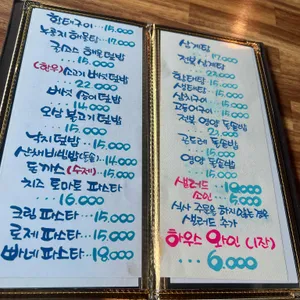 황태구이...15,000
누룽지 해물탕...17,000
굴소스 해물덮밥
...15,000
(한우)소고기 버섯덮밥
...22,000
버섯 송이덮밥
...14,000
오삼 불고기덮밥
...15,000
낙지덮밥...15,000
산채비빔밥(돌솥)...14,000
돈까스 (수제)...15,000
치즈 토마토 파스타
...16,000
크림 파스타...15,000
로제 파스타...15,000
빠네 파스타...18,000
삼계탕...17,000
전복 삼계탕
...23,000
황태탕...15,000
생태탕...15,000
삼치구이...15,000
고등어구이...15,000
전복 영양 돌솥밥
...23,000
곤드레 돌솥밥
...15,000
영양 돌솥밥
...15,000
샐러드...10,000
소인...5,000
식사 주문을 하지않는 경우
샐러드 추가
하우스 와인 (1잔)
...6,000